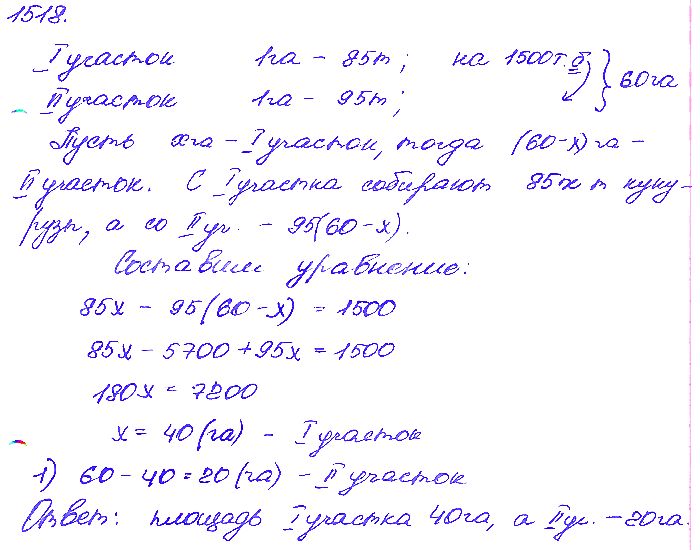 1518.
I участок 1га - 85т; на 1500т.б. } 60га
II участок 1га - 95т;
Пусть xга - I участок, тогда (60-x)га -
II участок. С I участка собирают 85x т куку-
рузы, а со II уч. - 95(60-x).
Составим уравнение:
85x - 95(60-x) = 1500
85x - 5700 + 95x = 1500
180x = 7200
x = 40 (га) - I участок
1) 60 - 40 = 20 (га) - II участок
Ответ: площадь I участка 40га, а II уч. - 20га.